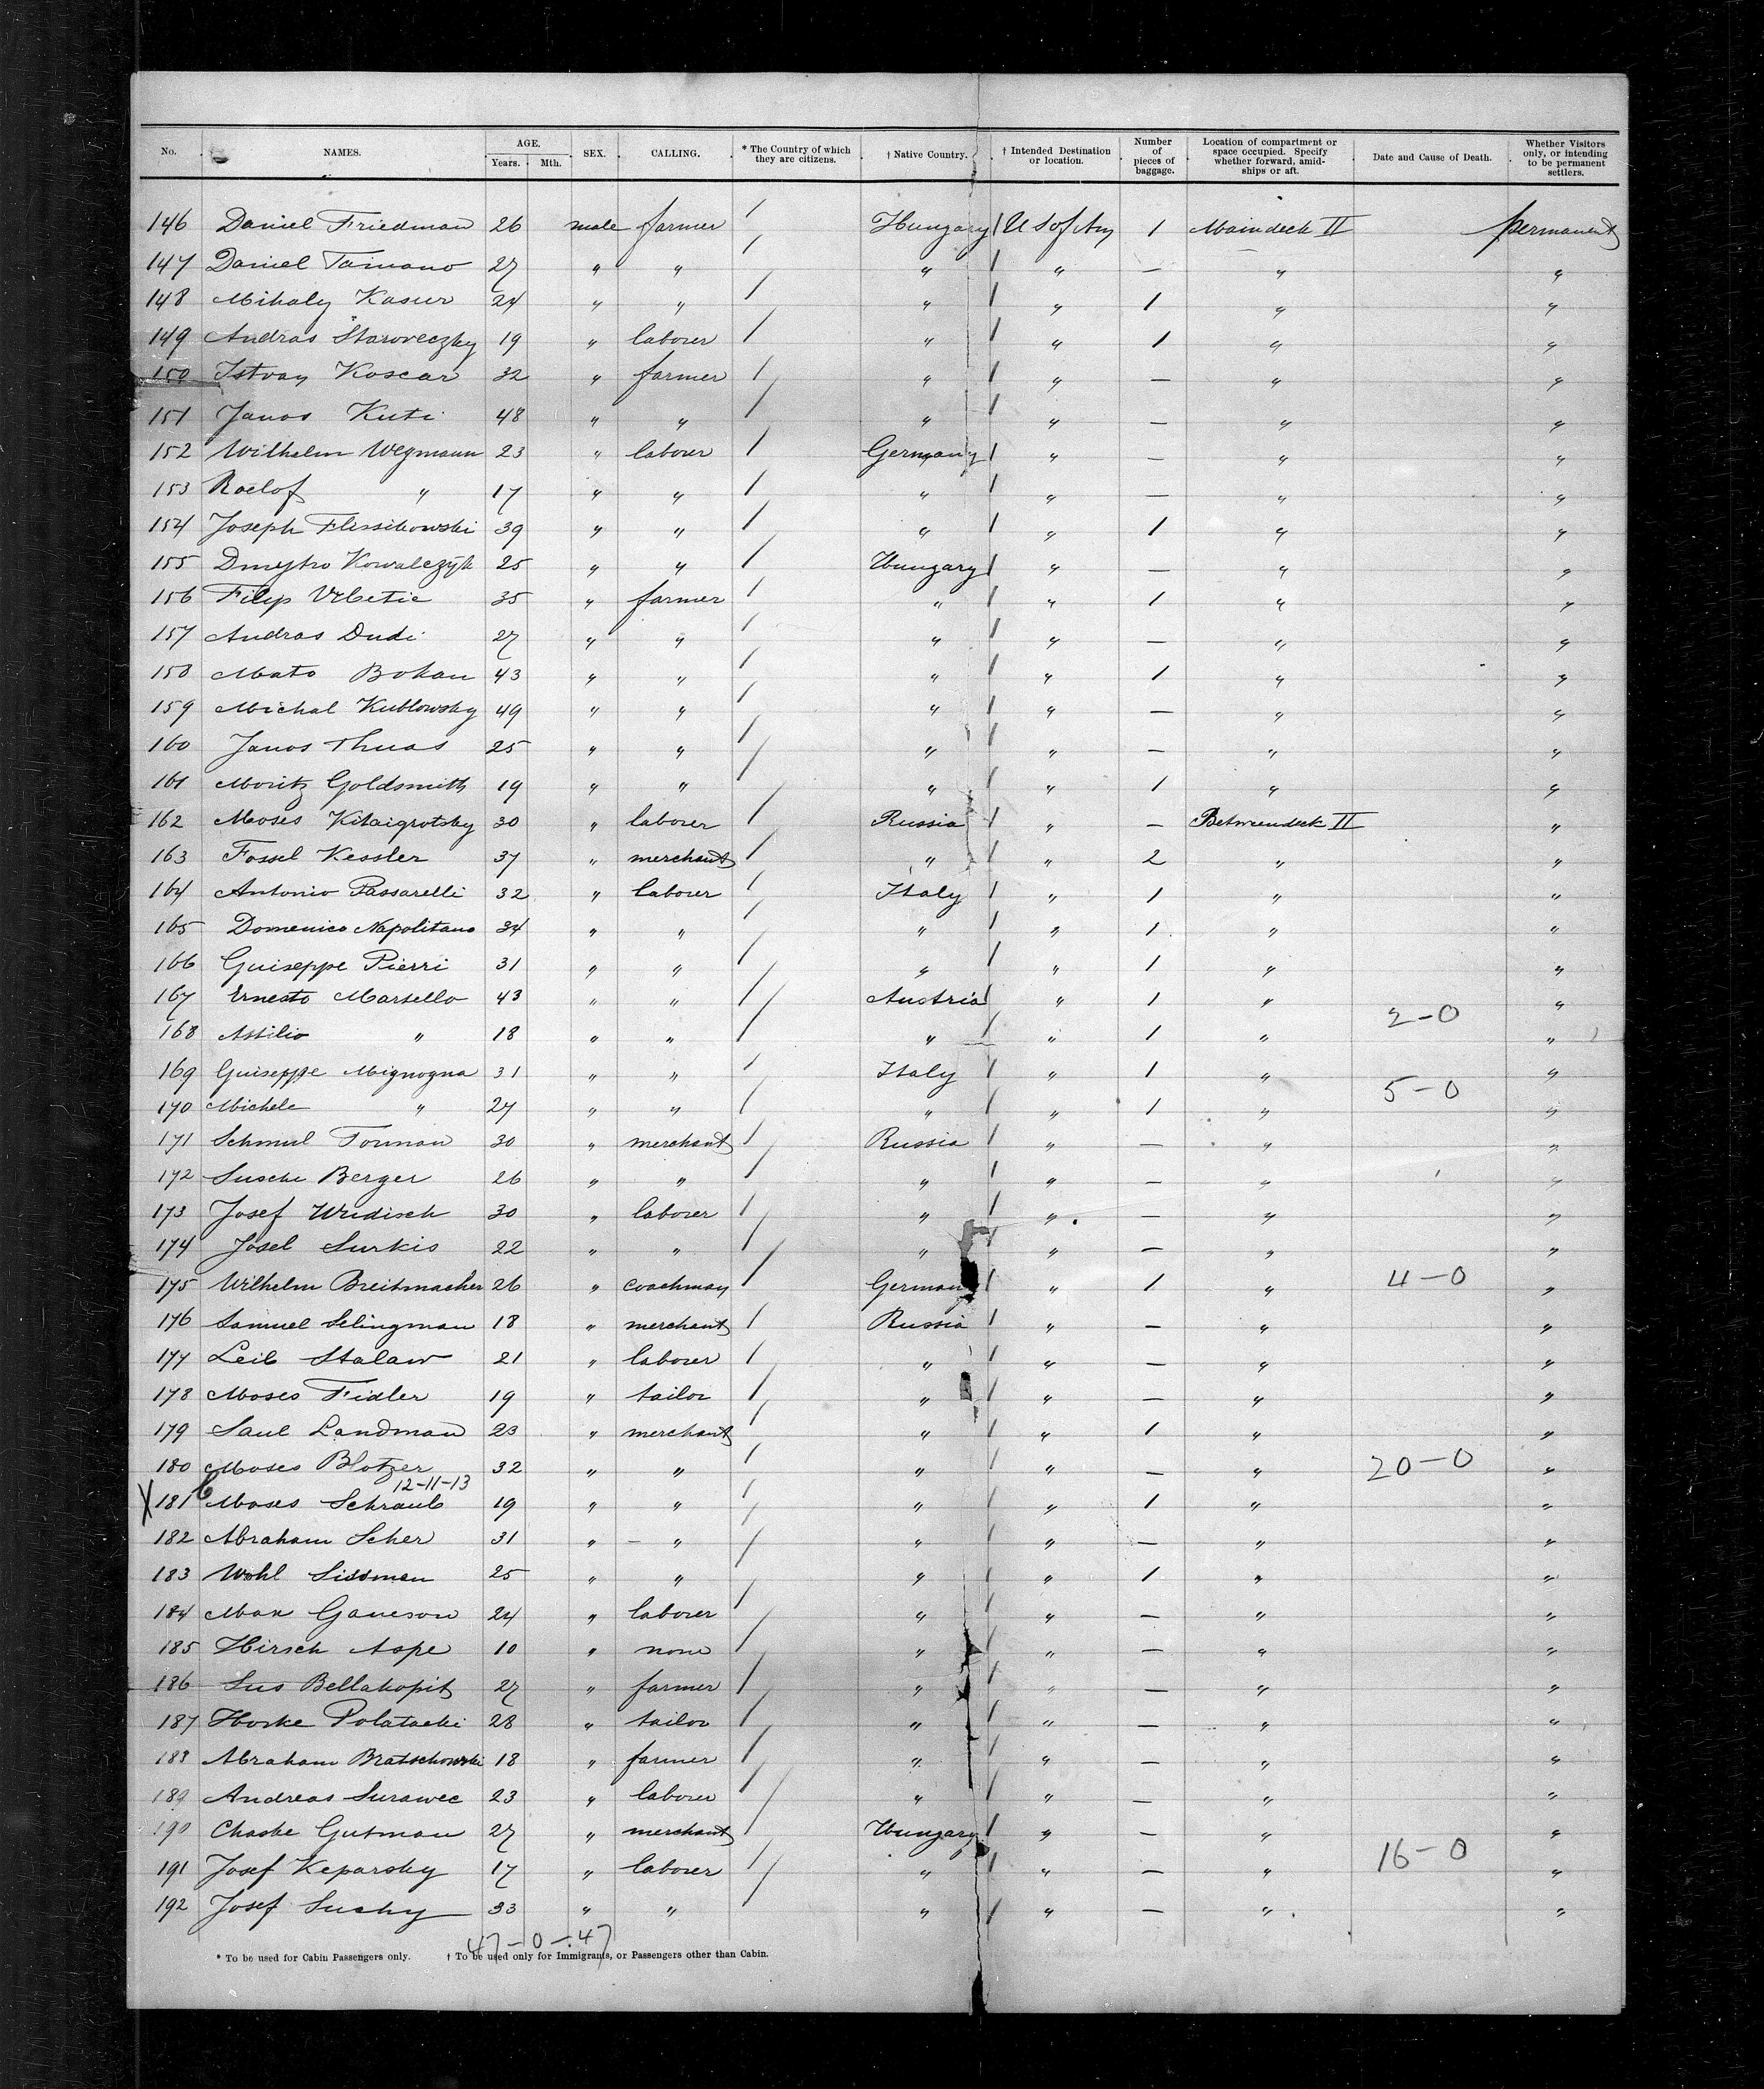 No. NAMES. AGE. Years. Mth. SEX. CALLING. * The Country of which they are citizens. † Native Country. † Intended Destination or location. Number of pieces of baggage. Location of compartment or space occupied. Specify whether forward, amidships or aft. Date and Cause of Death. Whether Visitors only, or intending to be permanent settlers.
146 Daniel Friedman 26 male farmer / Hungary / U S of Am 1 Maindeck II permanent
147 Daniel 27 " " / " / " — " "
148 Mihaly Kasur 24 " " / " / " 1 " "
149 Andras Staroveczky 19 " laborer / " / " 1 " "
150 Istvan Koscar 32 " farmer / " / " — " "
151 Janos Kuti 48 " " / " / " — " "
152 Wilhelm Wegmann 23 " laborer / Germany / " — " "
153 Roelof " 17 " " / " / " — " "
154 Joseph Flissikowski 39 " " / " / " 1 " "
155 Dmytro Kowalczyk 25 " " / Hungary / " — " "
156 Filip Vrbetic 35 " farmer / " / " 1 " "
157 Andras Dudi 27 " " / " / " — " "
158 Mato Bokan 43 " " / " / " 1 " "
159 Michal Kublowsky 49 " " / " / " — " "
160 Janos Thuas 25 " " / " / " — " "
161 Moritz Goldsmith 19 " " / " / " 1 " "
162 Moses Kitaigrotsky 30 " laborer / Russia / " — Betweendeck II "
163 Fossel Kessler 37 " merchant / " / " 2 " "
164 Antonio Passarelli 32 " laborer / Italy / " 1 " "
165 Domenico Napolitano 34 " " / " / " 1 " "
166 Guiseppe Pierri 31 " " / " / " 1 " "
167 Ernesto Marsello 43 " " / Austria / " 1 " 2-0 "
168 Attilio " 18 " " / " / " 1 " "
169 Guiseppe Mignogna 31 " " / Italy / " 1 " 5-0 "
170 Michele " 27 " " / " / " 1 " "
171 Schmul Forman 30 " merchant / Russia / " — " "
172 Susche Berger 26 " " / " / " — " "
173 Josef Wridisch 30 " laborer / " / " — " "
174 Josel Surkis 22 " " / " / " — " "
175 Wilhelm Breitmacher 26 " coachman / Germany / " 1 " 4-0 "
176 Samuel Selingman 18 " merchant / Russia / " — " "
177 Leib Stalaw 21 " laborer / " / " — " "
178 Moses Fidler 19 " tailor / " / " — " "
179 Saul Landman 23 " merchant / " / " 1 " "
180 Moses Blotzer 32 " " / " / " — " 20-0 "
12-11-13
X 181 Moses Schraub 19 " " / " / " 1 " "
182 Abraham Scher 31 " – " / " / " — " "
183 Wohl Sissman 25 " " / " / " 1 " "
184 Max Ganeson 24 " laborer / " / " — " "
185 Hirsch Aspe 10 " none / " / " — " "
186 Sus Bellakopit 27 " farmer / " / " — " "
187 Horke Polatacki 28 " tailor / " / " — " "
188 Abraham Bratschowski 18 " farmer / " / " — " "
189 Andreas Surawec 23 " laborer / " / " — " "
190 Chaske Gutman 27 " merchant / Hungary / " — " 16-0 "
191 Josef Keparsky 17 " laborer / " / " — " "
192 Josef Suchy 33 " " / " / " — " "
47-0-47
* To be used for Cabin Passengers only. † To be used only for Immigrants, or Passengers other than Cabin.